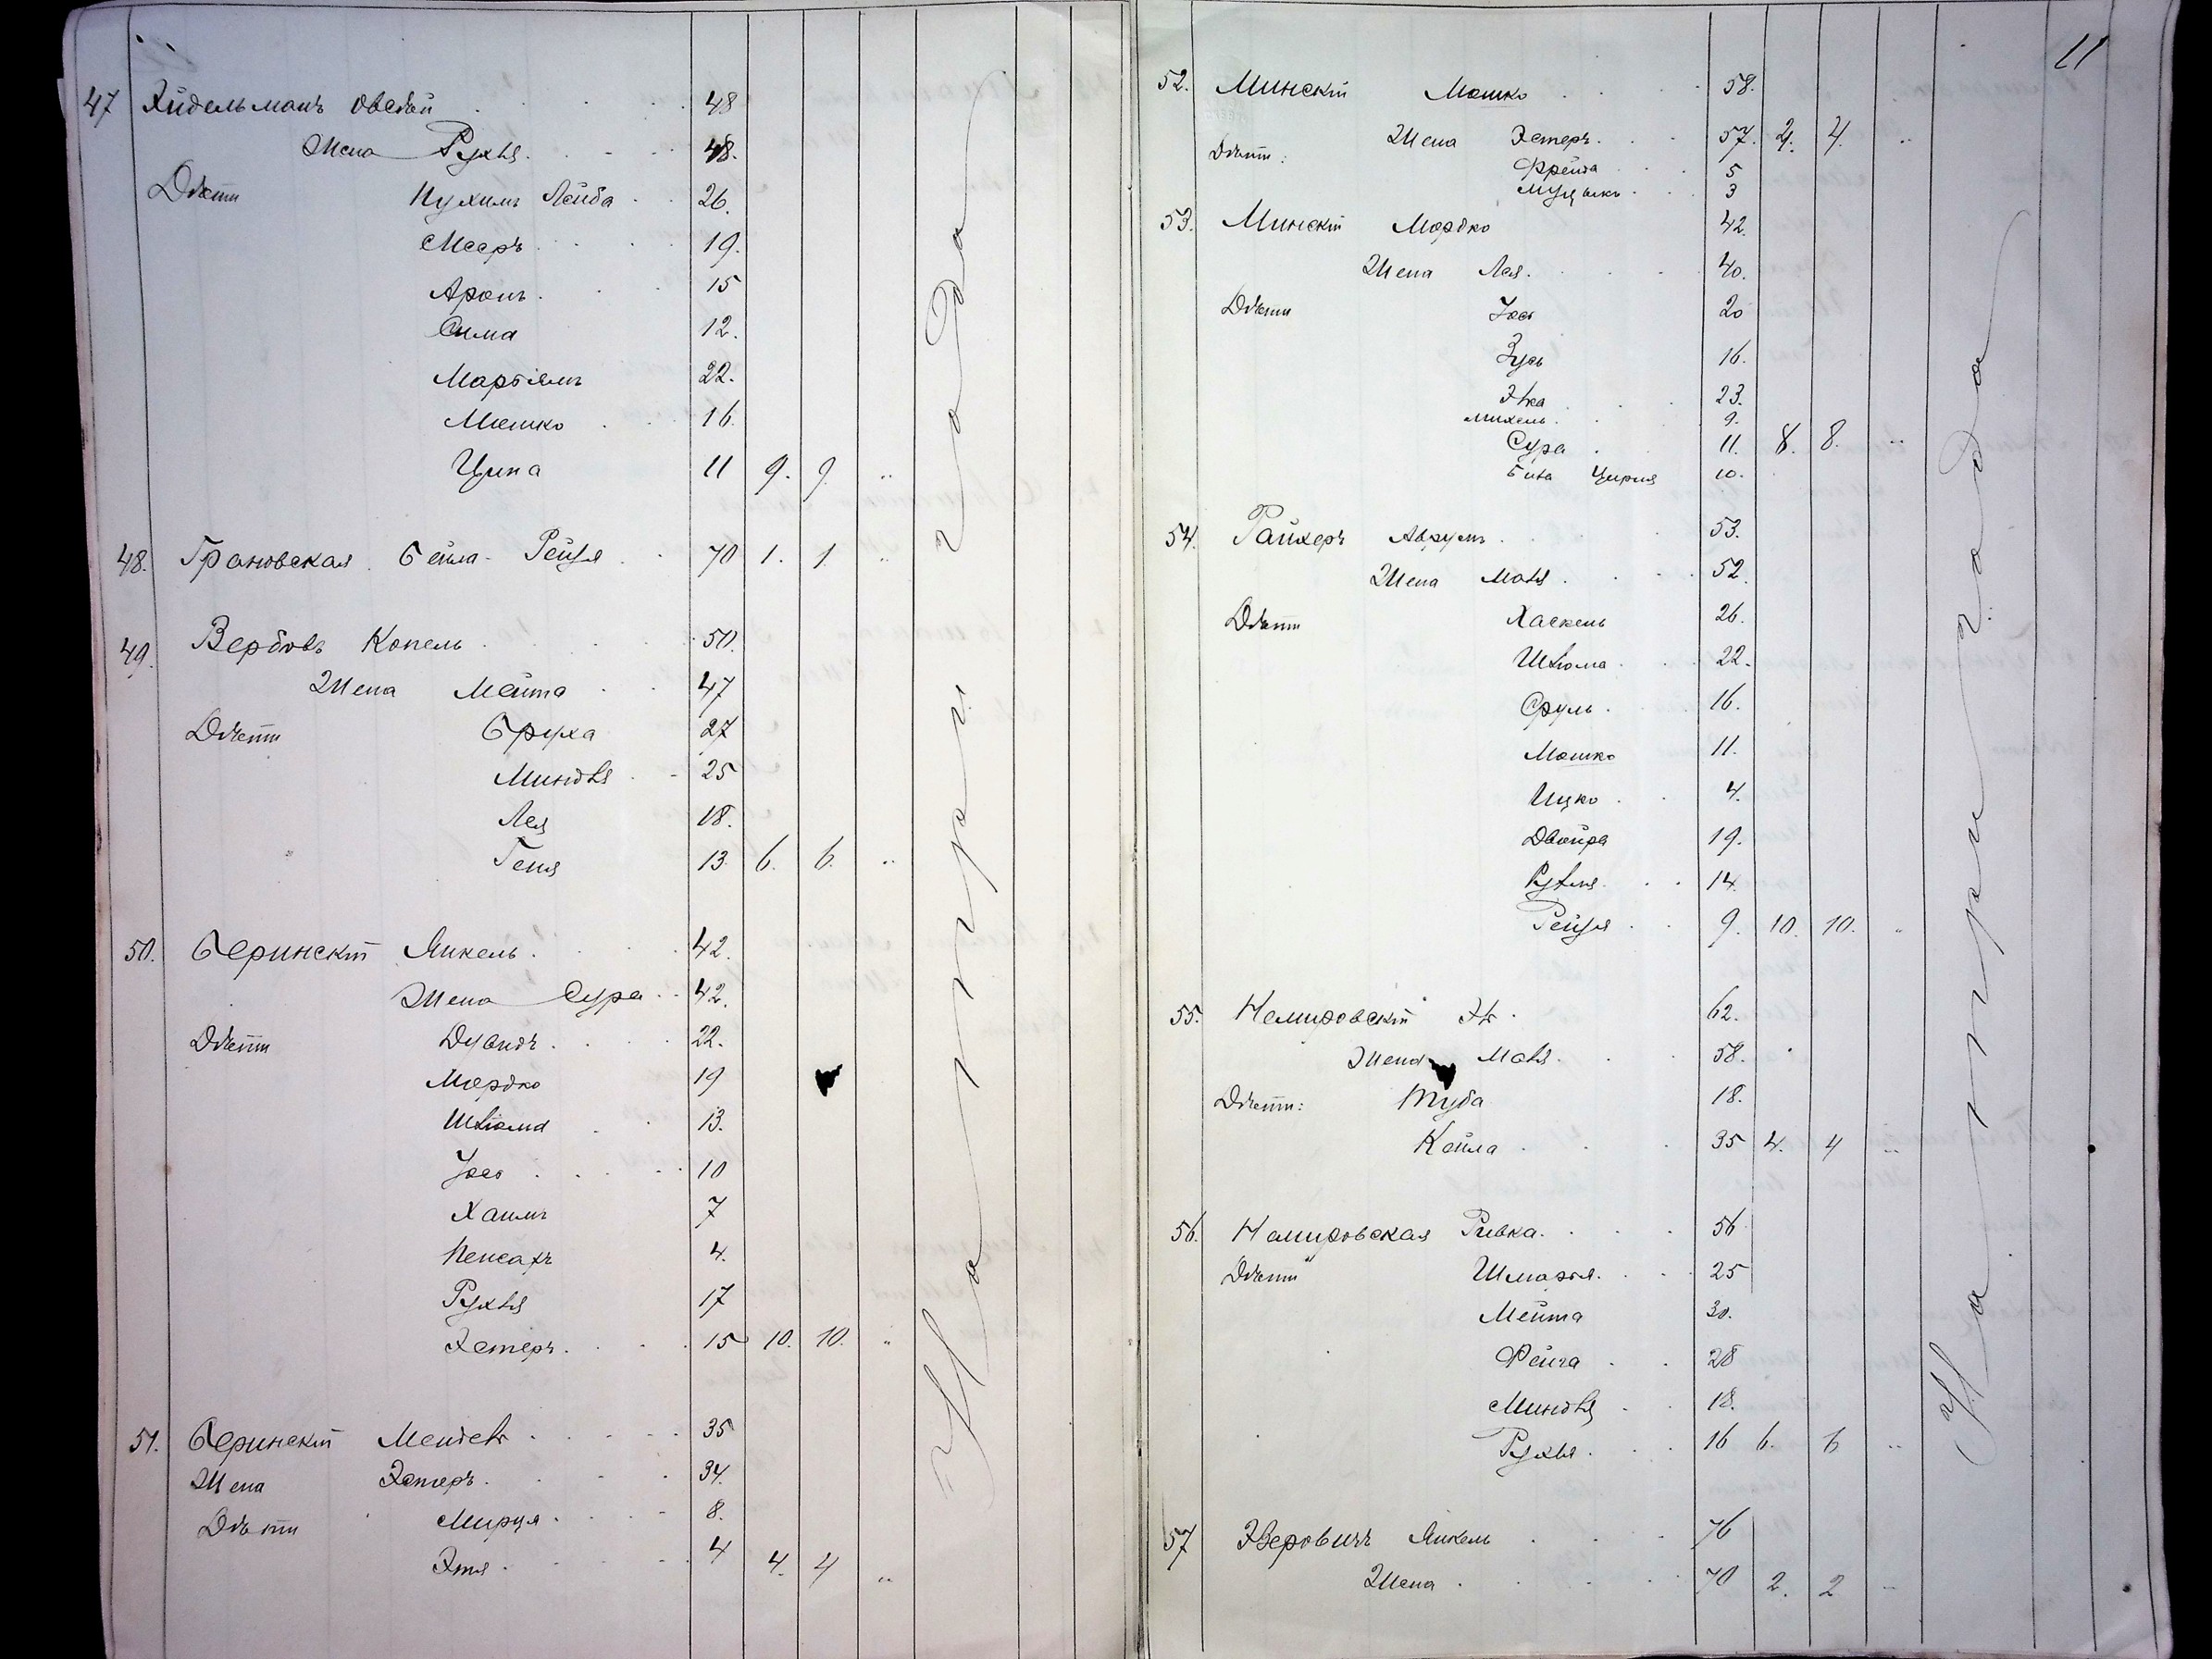 47 Хидельманъ Овсѣй . . . . . 48
Жена Рухля. . . . 48.
Дѣти Нухимъ Лейба . . 26.
Мееръ . . . . 19.
Аронъ . . . 15
Сима 12.
Марьямъ 22.
Мошко . . 16.
Ципа 11 9. 9. "
48. Грановская Бейла - Рейзя . 70 1. 1. "
49. Вербовъ Копель . . . . 50.
Жена Мейта . . 47
Дѣти Бруха 27
Миндля . - 25
Лея 18.
Геня 13. 6. 6. "
50. Беринскій Янкель . . . . 42.
Жена Сура . . 42.
Дѣти Дувидъ . . . . 22.
Мордко 19
Шлiома . . 13.
Iось . . . . . 10
Хаимъ 7
Пейсахъ 4.
Рухля 17
Эстеръ . . . . 15 10. 10. "
51. Беринскій Мендель . . . . . 35
Жена Эстеръ . . . . 34.
Дѣти Мирця . . . . 8.
Этя . . . . . 4 4. 4 "
На три года
11
52. Минскій Мошко . . . . 58.
Жена Эстеръ . . . 57. 4. 4. "
Дѣти: Фрейда . . . 5
3
53. Минскій Мордко 42.
Жена Лея . . . . 40.
Дѣти Iось 20
Зусь 16.
23.
Михель . . 9.
Сура . 11. 8. 8. "
10.
54. Райхеръ Аврумъ . . . . 53.
Жена Маля . . . . 52.
Дѣти Хаскель 26.
Шлiома . . . 22.
Сруль . . . 16.
Мошко 11.
Ицко . . 4.
Двойра 19.
14.
Рейзя . . 9. 10. 10. "
55. Немировскій . 62.
Жена Маля . . . 58.
Дѣти: Туба 18.
Кейла . . . 35 4. 4 "
56. Немировская Ривка . . . . 56
Дѣти Шмарья . . . 25
Мейта 30.
Фейга . . 28
Миндля . . 18.
Рухля . . . 16 6. 6 "
57 Зверовичъ Янкель . . . 76
Жена . . . . . 70 2. 2 "
На три года